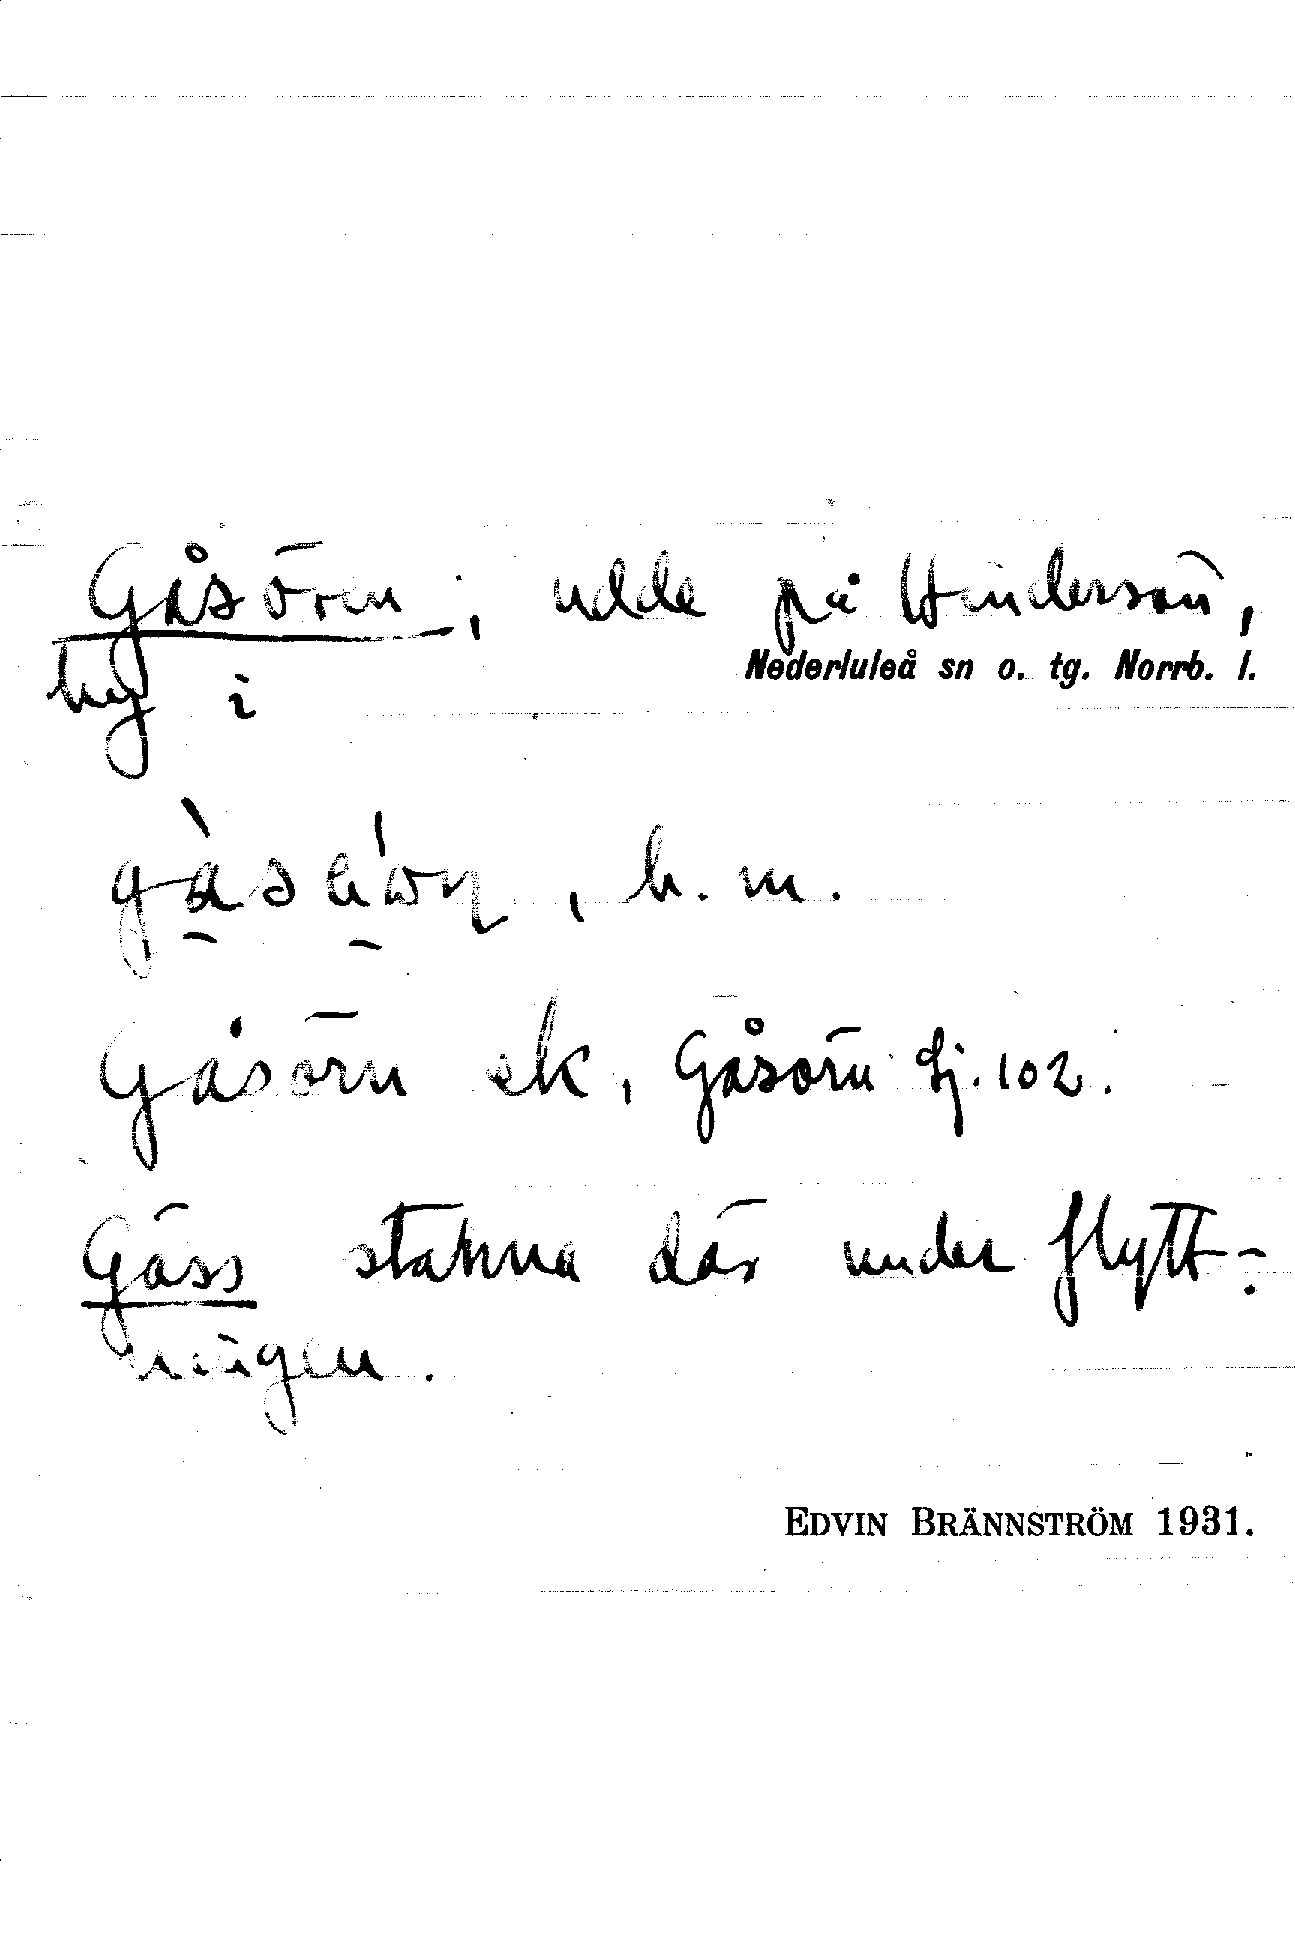 Gåsören, udde på Hindersön,
by i Nederluleå sn o. tg. Norrb. l.
h. m.
Gåsörn ek, Gåsörn Lj. 102.
Gäss stanna där under flytt-
ningen.
EDVIN BRÄNNSTRÖM 1931.